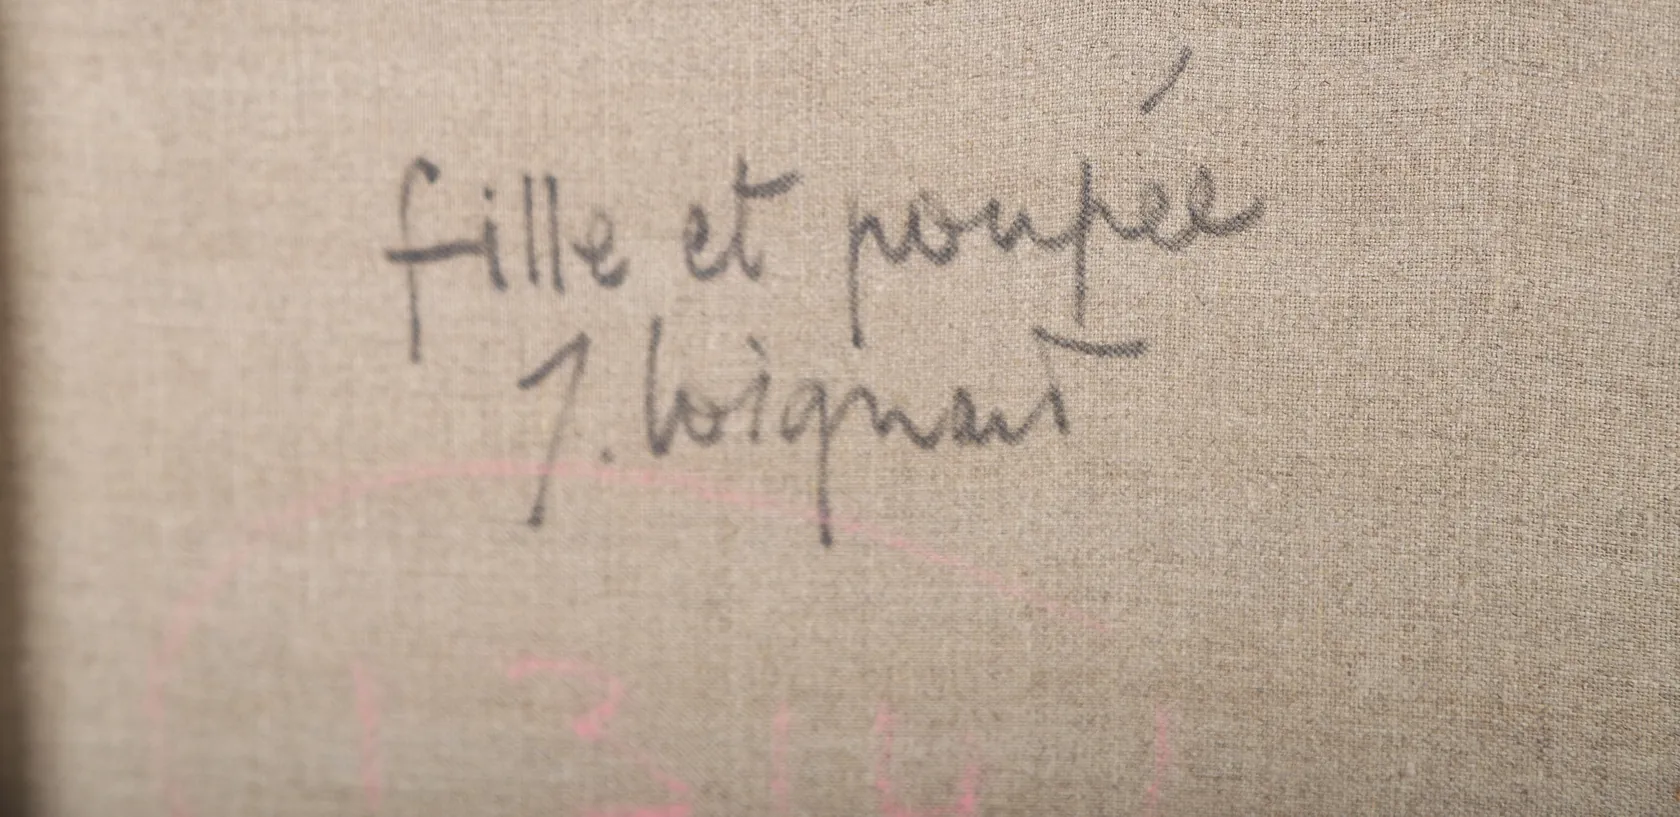 fille et poupée
J. Loignant